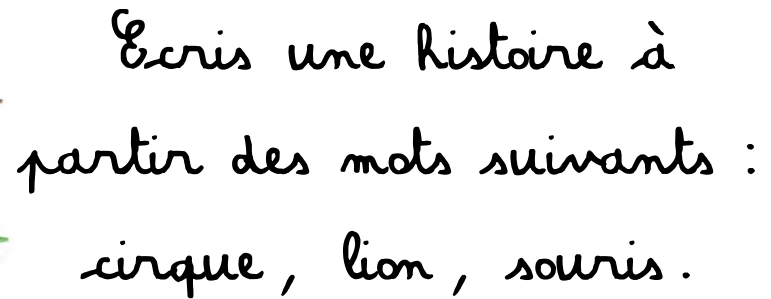 Ecris une histoire à
partir des mots suivants :
cirque, lion, souris.